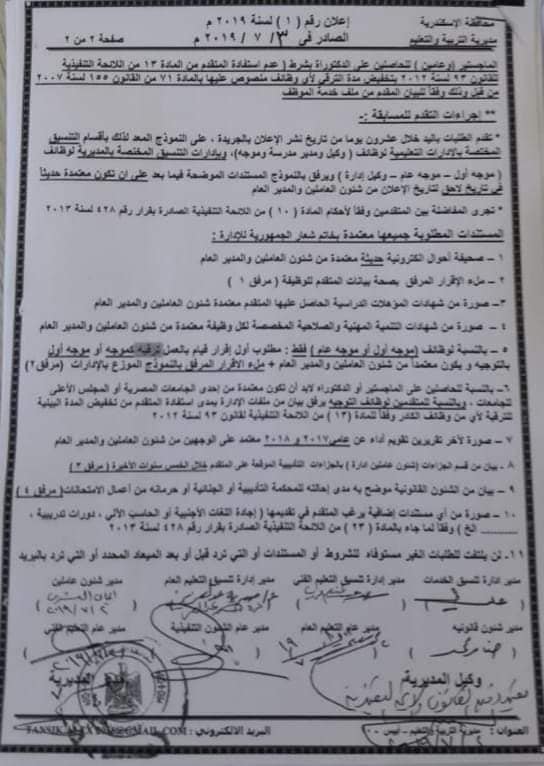 محافظة الإسكندرية
مديرية التربية والتعليم
إعلان رقم ( ١ ) لسنة ٢٠١٩ م
الصادر فى ٣ / ٧ / ٢٠١٩ م
صفحة ٢ من ٢
الماجستير (وعامين) للحاصلين على الدكتوراة بشرط ( عدم استفادة المتقدم من المادة ١٣ من اللائحة التنفيذية
للقانون ٩٣ لسنة ٢٠١٢ بتخفيض مدة الترقي لأي وظائف منصوص عليها بالمادة ٧١ من القانون ١٥٥ لسنة ٢٠٠٧
من قبل وذلك وفقاً للبيان المقدم من ملف خدمة الموظف
** إجراءات التقدم للمسابقة :-
* تقدم الطلبات باليد خلال عشرون يوما من تاريخ نشر الإعلان بالجريدة ، على النموذج المعد لذلك بأقسام التنسيق
المختصة بالإدارات التعليمية لوظائف ( وكيل ومدير مدرسة وموجه)، وبإدارات التنسيق المختصة بالمديرية لوظائف
( موجه أول – موجه عام – وكيل إدارة ) ويرفق بالنموذج المستندات الموضحة فيما بعد على ان تكون معتمدة حديثاً
فى تاريخ لاحق لتاريخ الإعلان من شئون العاملين والمدير العام
* تجرى المفاضلة بين المتقدمين وفقاً لأحكام المادة ( ١٠ ) من اللائحة التنفيذية الصادرة بقرار رقم ٤٢٨ لسنة ٢٠١٣
المستندات المطلوبة جميعها معتمدة بخاتم شعار الجمهورية للإدارة :
١ – صحيفة أحوال الكترونية حديثة معتمدة من شئون العاملين والمدير العام
٢ – ملء الإقرار المرفق بصحة بيانات المتقدم للوظيفة ( مرفق ١ )
٣- صورة من شهادات المؤهلات الدراسية الحاصل عليها المتقدم معتمدة شئون العاملين والمدير العام
٤ – صورة من شهادات التنمية المهنية والصلاحية المخصصة لكل وظيفة معتمدة من شئون العاملين والمدير العام
٥ – بالنسبة لوظائف (موجه أول أو موجه عام ) فقط : مطلوب أول إقرار قيام بالعمل ترقيه كموجه أو موجه أول
بالتوجيه و يكون معتمداً من شئون العاملين والمدير العام + ملء الاقرار المرفق بالنموذج الموزع بالإدارات (مرفق٢)
٦– بالنسبة للحاصلين على الماجستير أو الدكتوراه لابد أن تكون معتمدة من إحدى الجامعات المصرية أو المجلس الأعلى
للجامعات ، وبالنسبة للمتقدمين لوظائف التوجيه يرفق بيان من ملفات الإدارة بمدى استفادة المتقدم من تخفيض المدة البينية
للترقية لأي من وظائف الكادر وفقاً للمادة (١٣ ) من اللائحة التنفيذية لقانون ٩٣ لسنة ٢٠١٢
٧ – صورة لآخر تقريرين تقويم أداء عن عامي٢٠١٧ و ٢٠١٨ معتمد على الوجهين من شئون العاملين والمدير العام
٨ - بيان من قسم الجزاءات (شئون عاملين ادارة ) بالجزاءات التأديبية الموقعة على المتقدم خلال الخمس سنوات الأخيرة ( مرفق ٣ )
٩ – بيان من الشئون القانونية موضح به مدى إحالته للمحكمة التأديبية أو الجنائية أو حرمانه من أعمال الامتحانات( مرفق ٤ )
١٠ - صورة من أي مستندات إضافية يرغب المتقدم في تقديمها ( إجادة اللغات الأجنبية أو الحاسب الآلي ، دورات تدريبية ،
........ الخ ) وفقاً لما جاء بالمادة ( ٢٣ ) من اللائحة التنفيذية الصادرة بقرار رقم ٤٢٨ لسنة ٢٠١٣
١١- لن يلتفت للطلبات الغير مستوفاه للشروط أو المستندات أو التي ترد قبل أو بعد الميعاد المحدد أو التي ترد بالبريد
مدير ادارة تنسيق الخدمات
مدير إدارة تنسيق التعليم الفني
مدير إدارة تنسيق التعليم العام
مدير شئون عاملين
مدير شئون قانونيه
مدير عام التعليم العام
مدير عام الشئون التنفيذية
مدير عام التعليم الفني
وكيل المديرية
المديرية
العنوان : مديرية التربية والتعليم -
البريد الالكتروني :